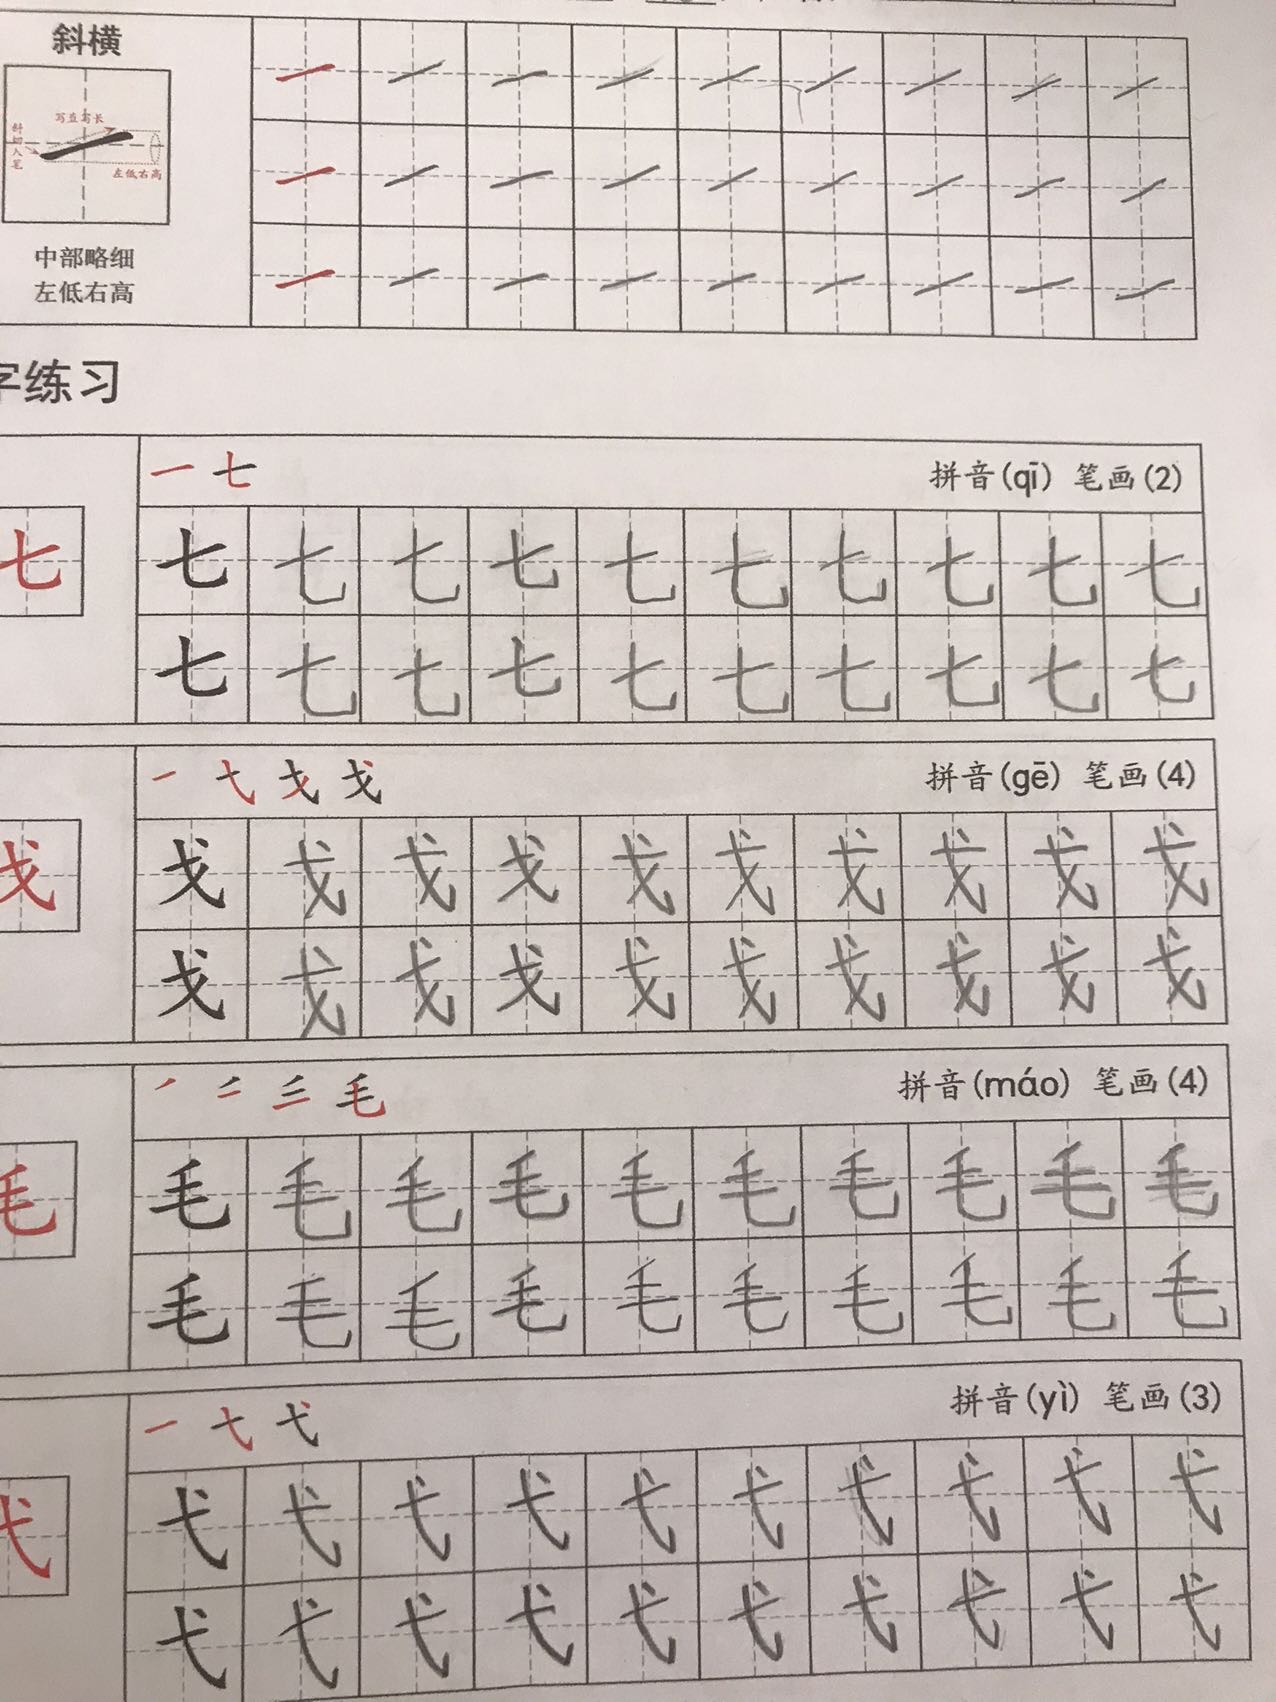 斜横
写直写长
斜切入笔
左低右高
中部略细
左低右高
字练习
一 七 拼音(qī) 笔画(2)
七 七 七 七 七 七 七 七 七 七 七
七 七 七 七 七 七 七 七 七 七
一 弋 戈 戈 拼音(gē) 笔画(4)
戈 戈 戈 戈 戈 戈 戈 戈 戈 戈 戈
戈 戈 戈 戈 戈 戈 戈 戈 戈 戈
毛 拼音(máo) 笔画(4)
毛 毛 毛 毛 毛 毛 毛 毛 毛 毛 毛
毛 毛 毛 毛 毛 毛 毛 毛 毛 毛
一 弋 弋 拼音(yì) 笔画(3)
弋 弋 弋 弋 弋 弋 弋 弋 弋 弋 弋
弋 弋 弋 弋 弋 弋 弋 弋 弋 弋